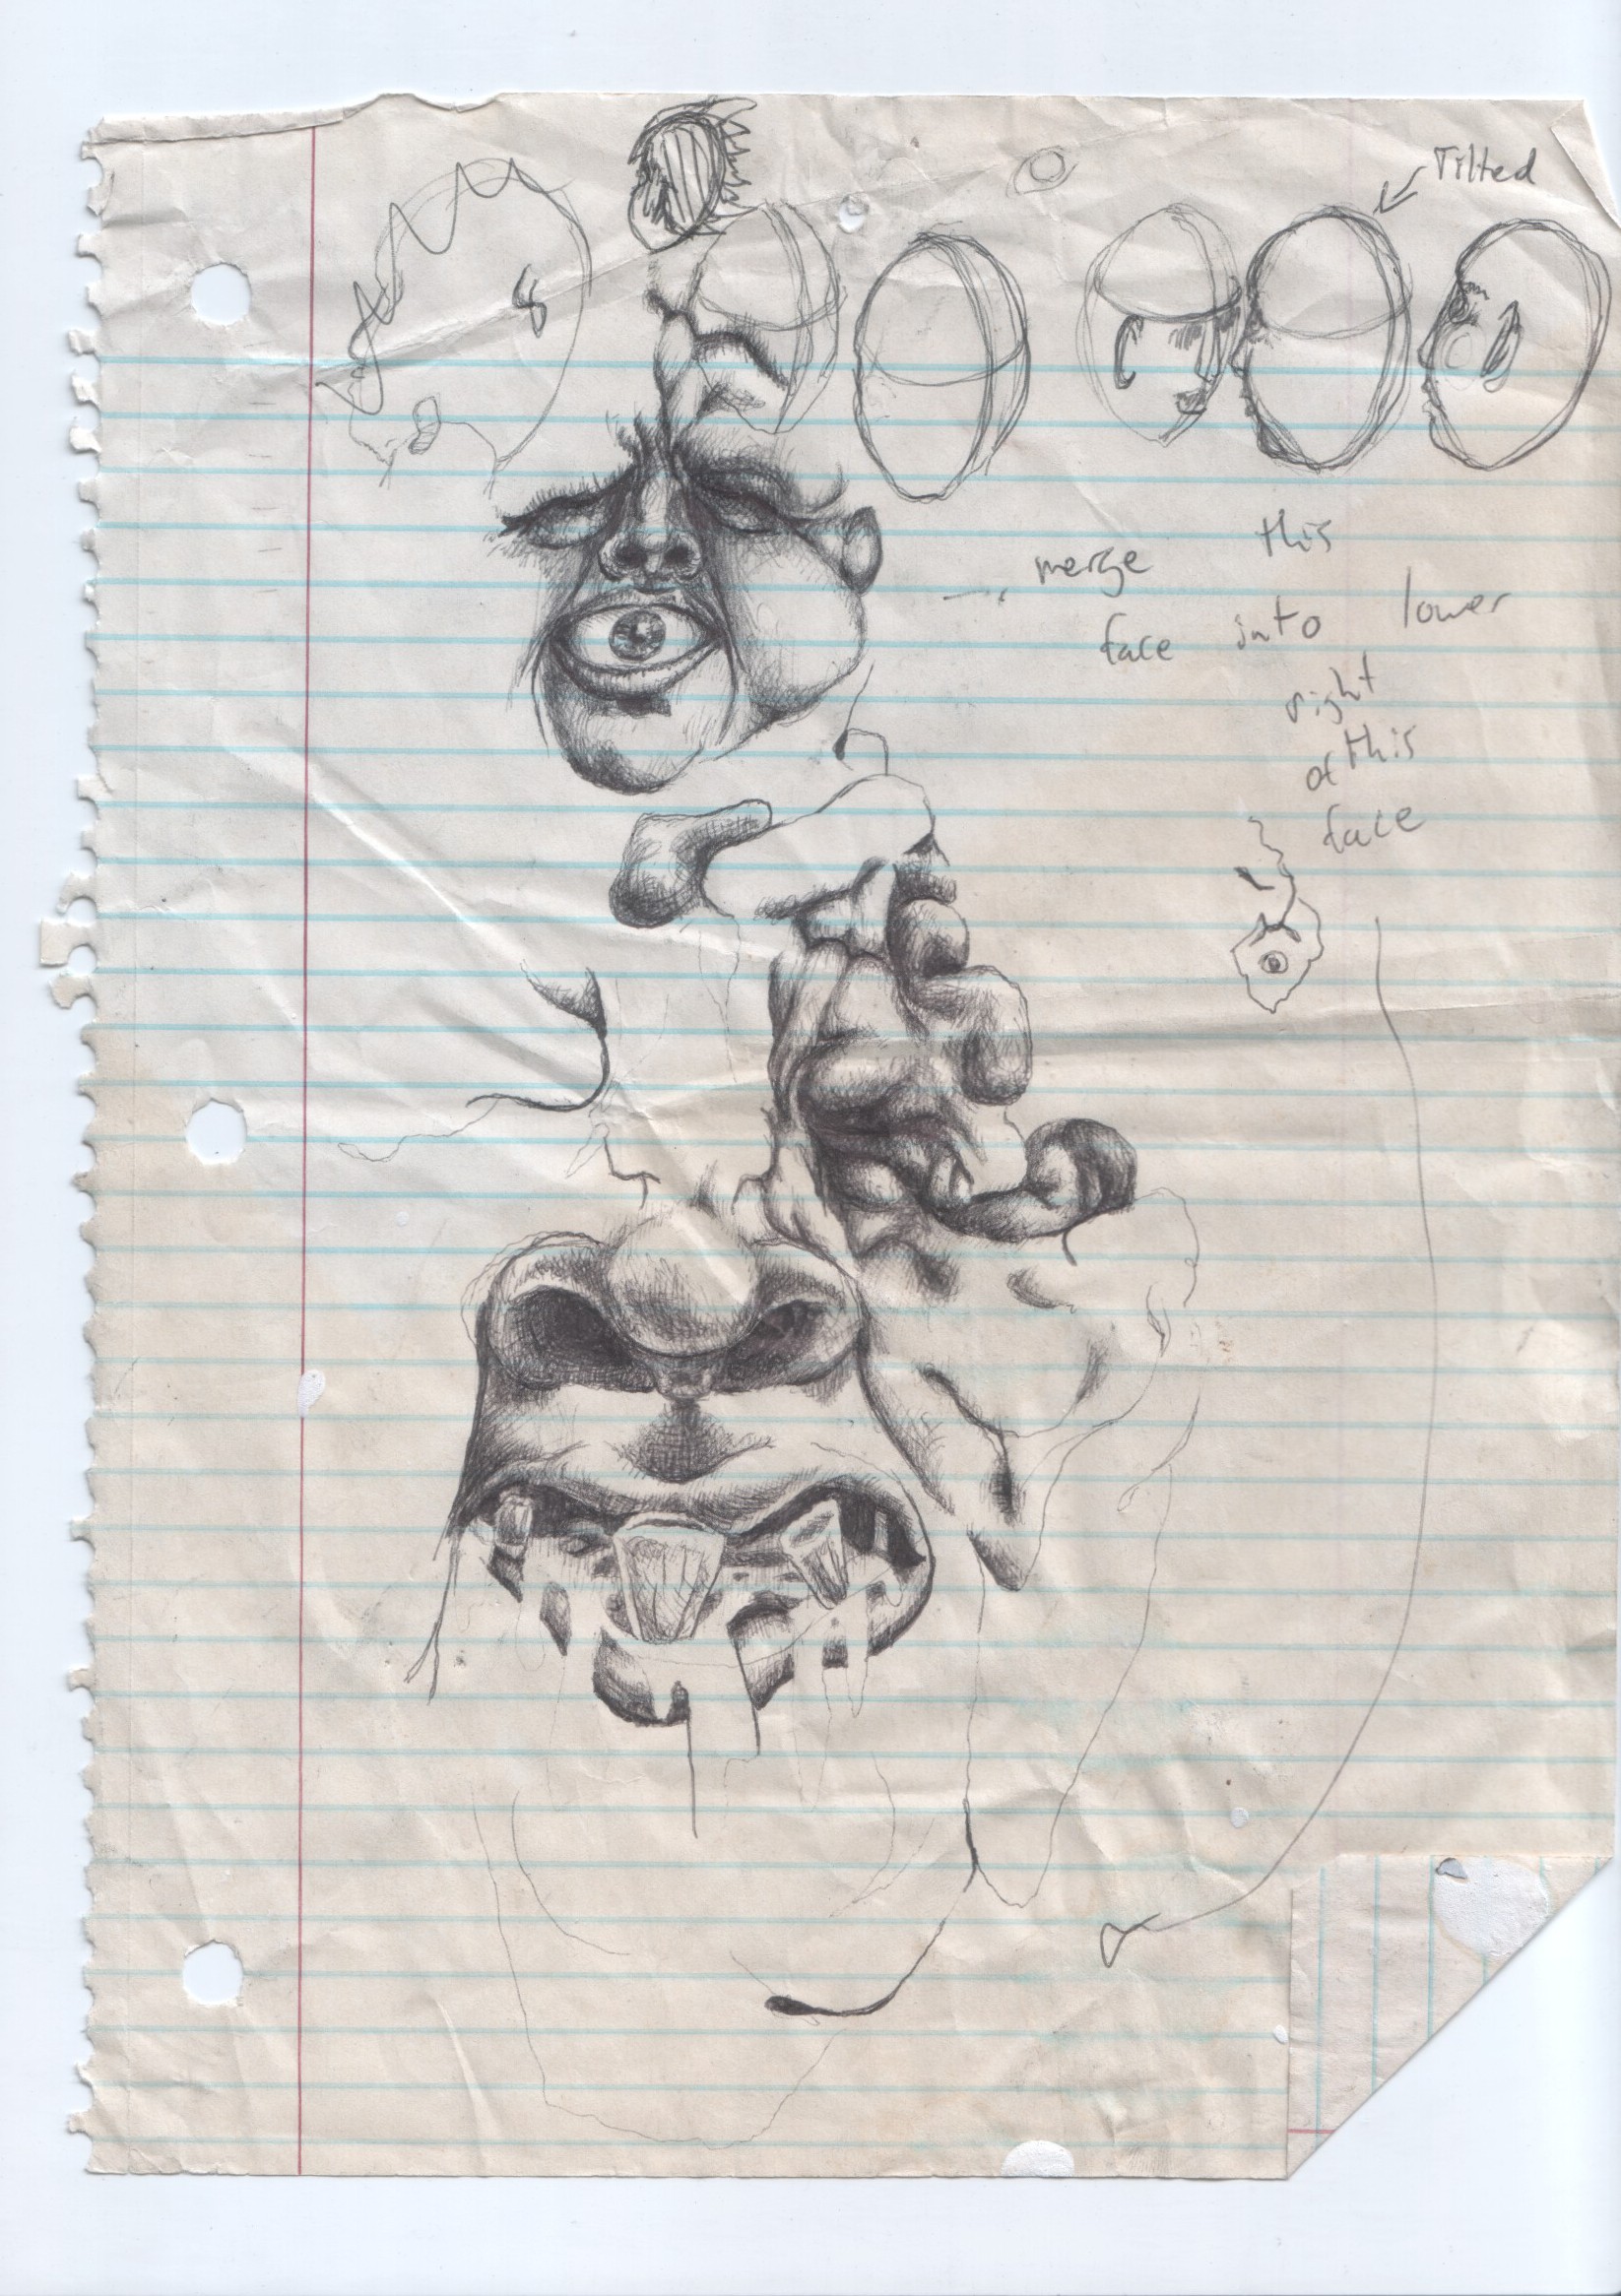 Tilted
merge this
face into lower
right
of this
face